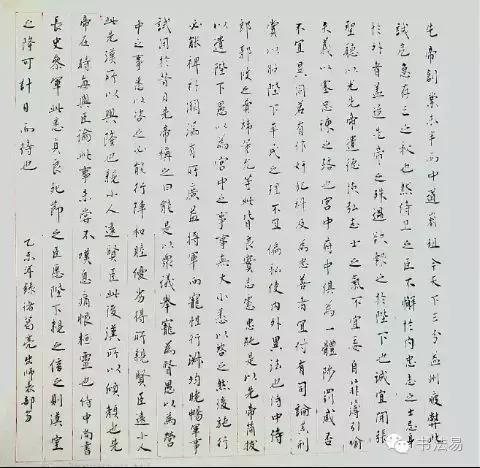 先帝創業未半而中道崩殂今天下三分益州疲弊此
誠危急存亡之秋也然侍卫之臣不懈於内忠志之士忘身
於外者盖追先帝之殊遇欲報之於陛下也誠宜開張
聖聽以光先帝遺德恢弘志士之氣不宜妄自菲薄引喻
失義以塞忠諫之路也宫中府中俱為一體陟罚臧否
不宜異同若有作奸犯科及為忠善者宜付有司論其刑
賞以昭陛下平明之理不宜偏私使内外異法也侍中侍
郎郭攸之费禕董允等此皆良實志慮忠純是以先帝簡拔
以遺陛下愚以為宫中之事事無大小悉以咨之然後施行
必能裨補闕漏有所廣益將軍向寵性行淑均曉暢軍事
試用於昔日先帝稱之曰能是以衆議舉寵為督愚以為營
中之事悉以咨之必能行陣和睦優劣得所親賢臣遠小人
此先漢所以興隆也親小人遠賢臣此後漢所以傾頹也先
帝在時每與臣論此事未嘗不嘆息痛恨桓靈也侍中尚書
長史參軍此悉貞良死節之臣愿陛下親之信之則漢室
之隆可計日而待也
乙未年錄諸葛亮出師表部分
书法易